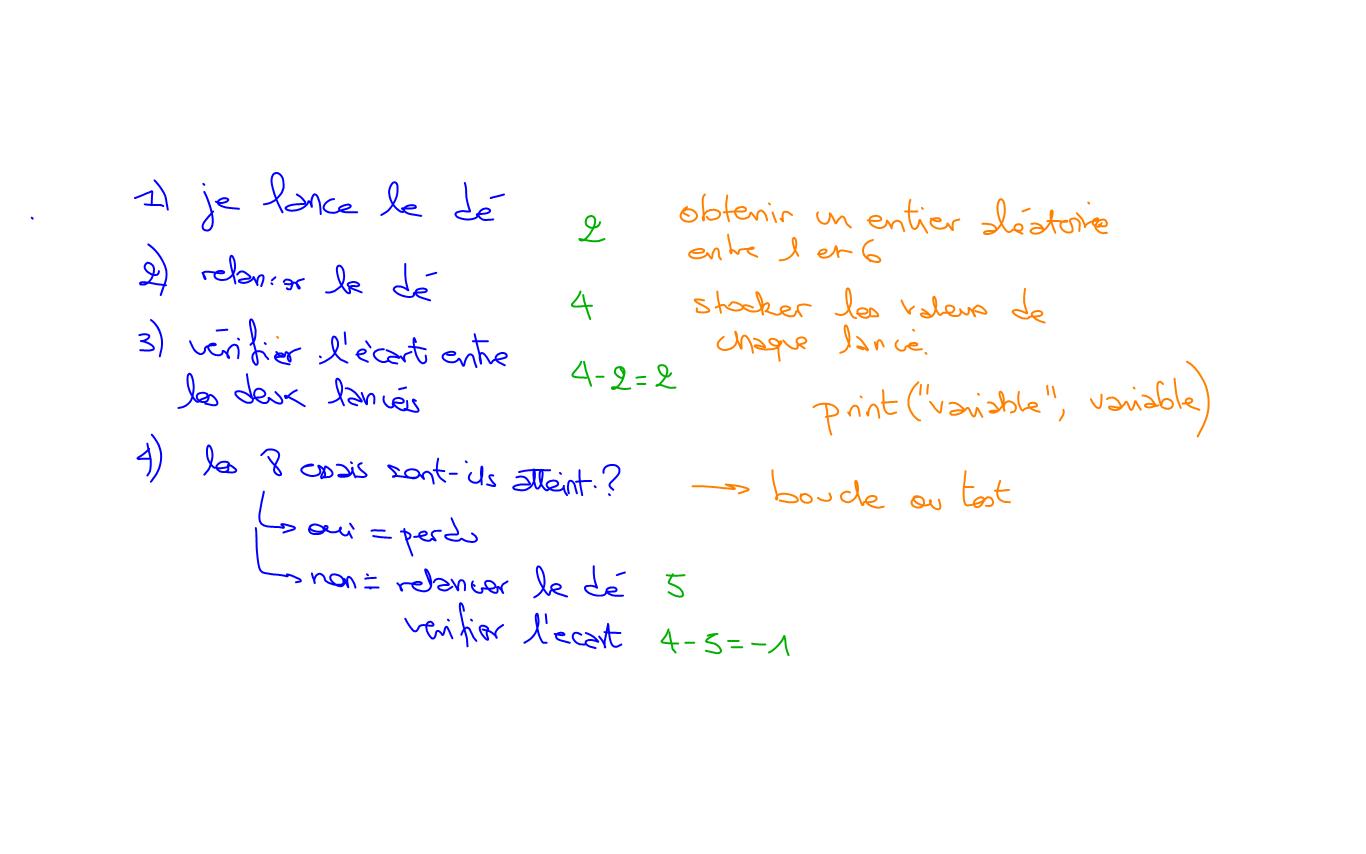 1) je lance le dé
2
obtenir un entier aléatoire
entre 1 et 6
2) relancer le dé
4
stocker les valeurs de
chaque lancé.
3) vérifier l'écart entre
les deux lancés
4-2=2
print("variable", variable)
4) les 8 essais sont-ils atteint?
→ boucle ou test
↳ oui = perdu
↳ non = relancer le dé
5
verifier l'ecart
4-5=-1